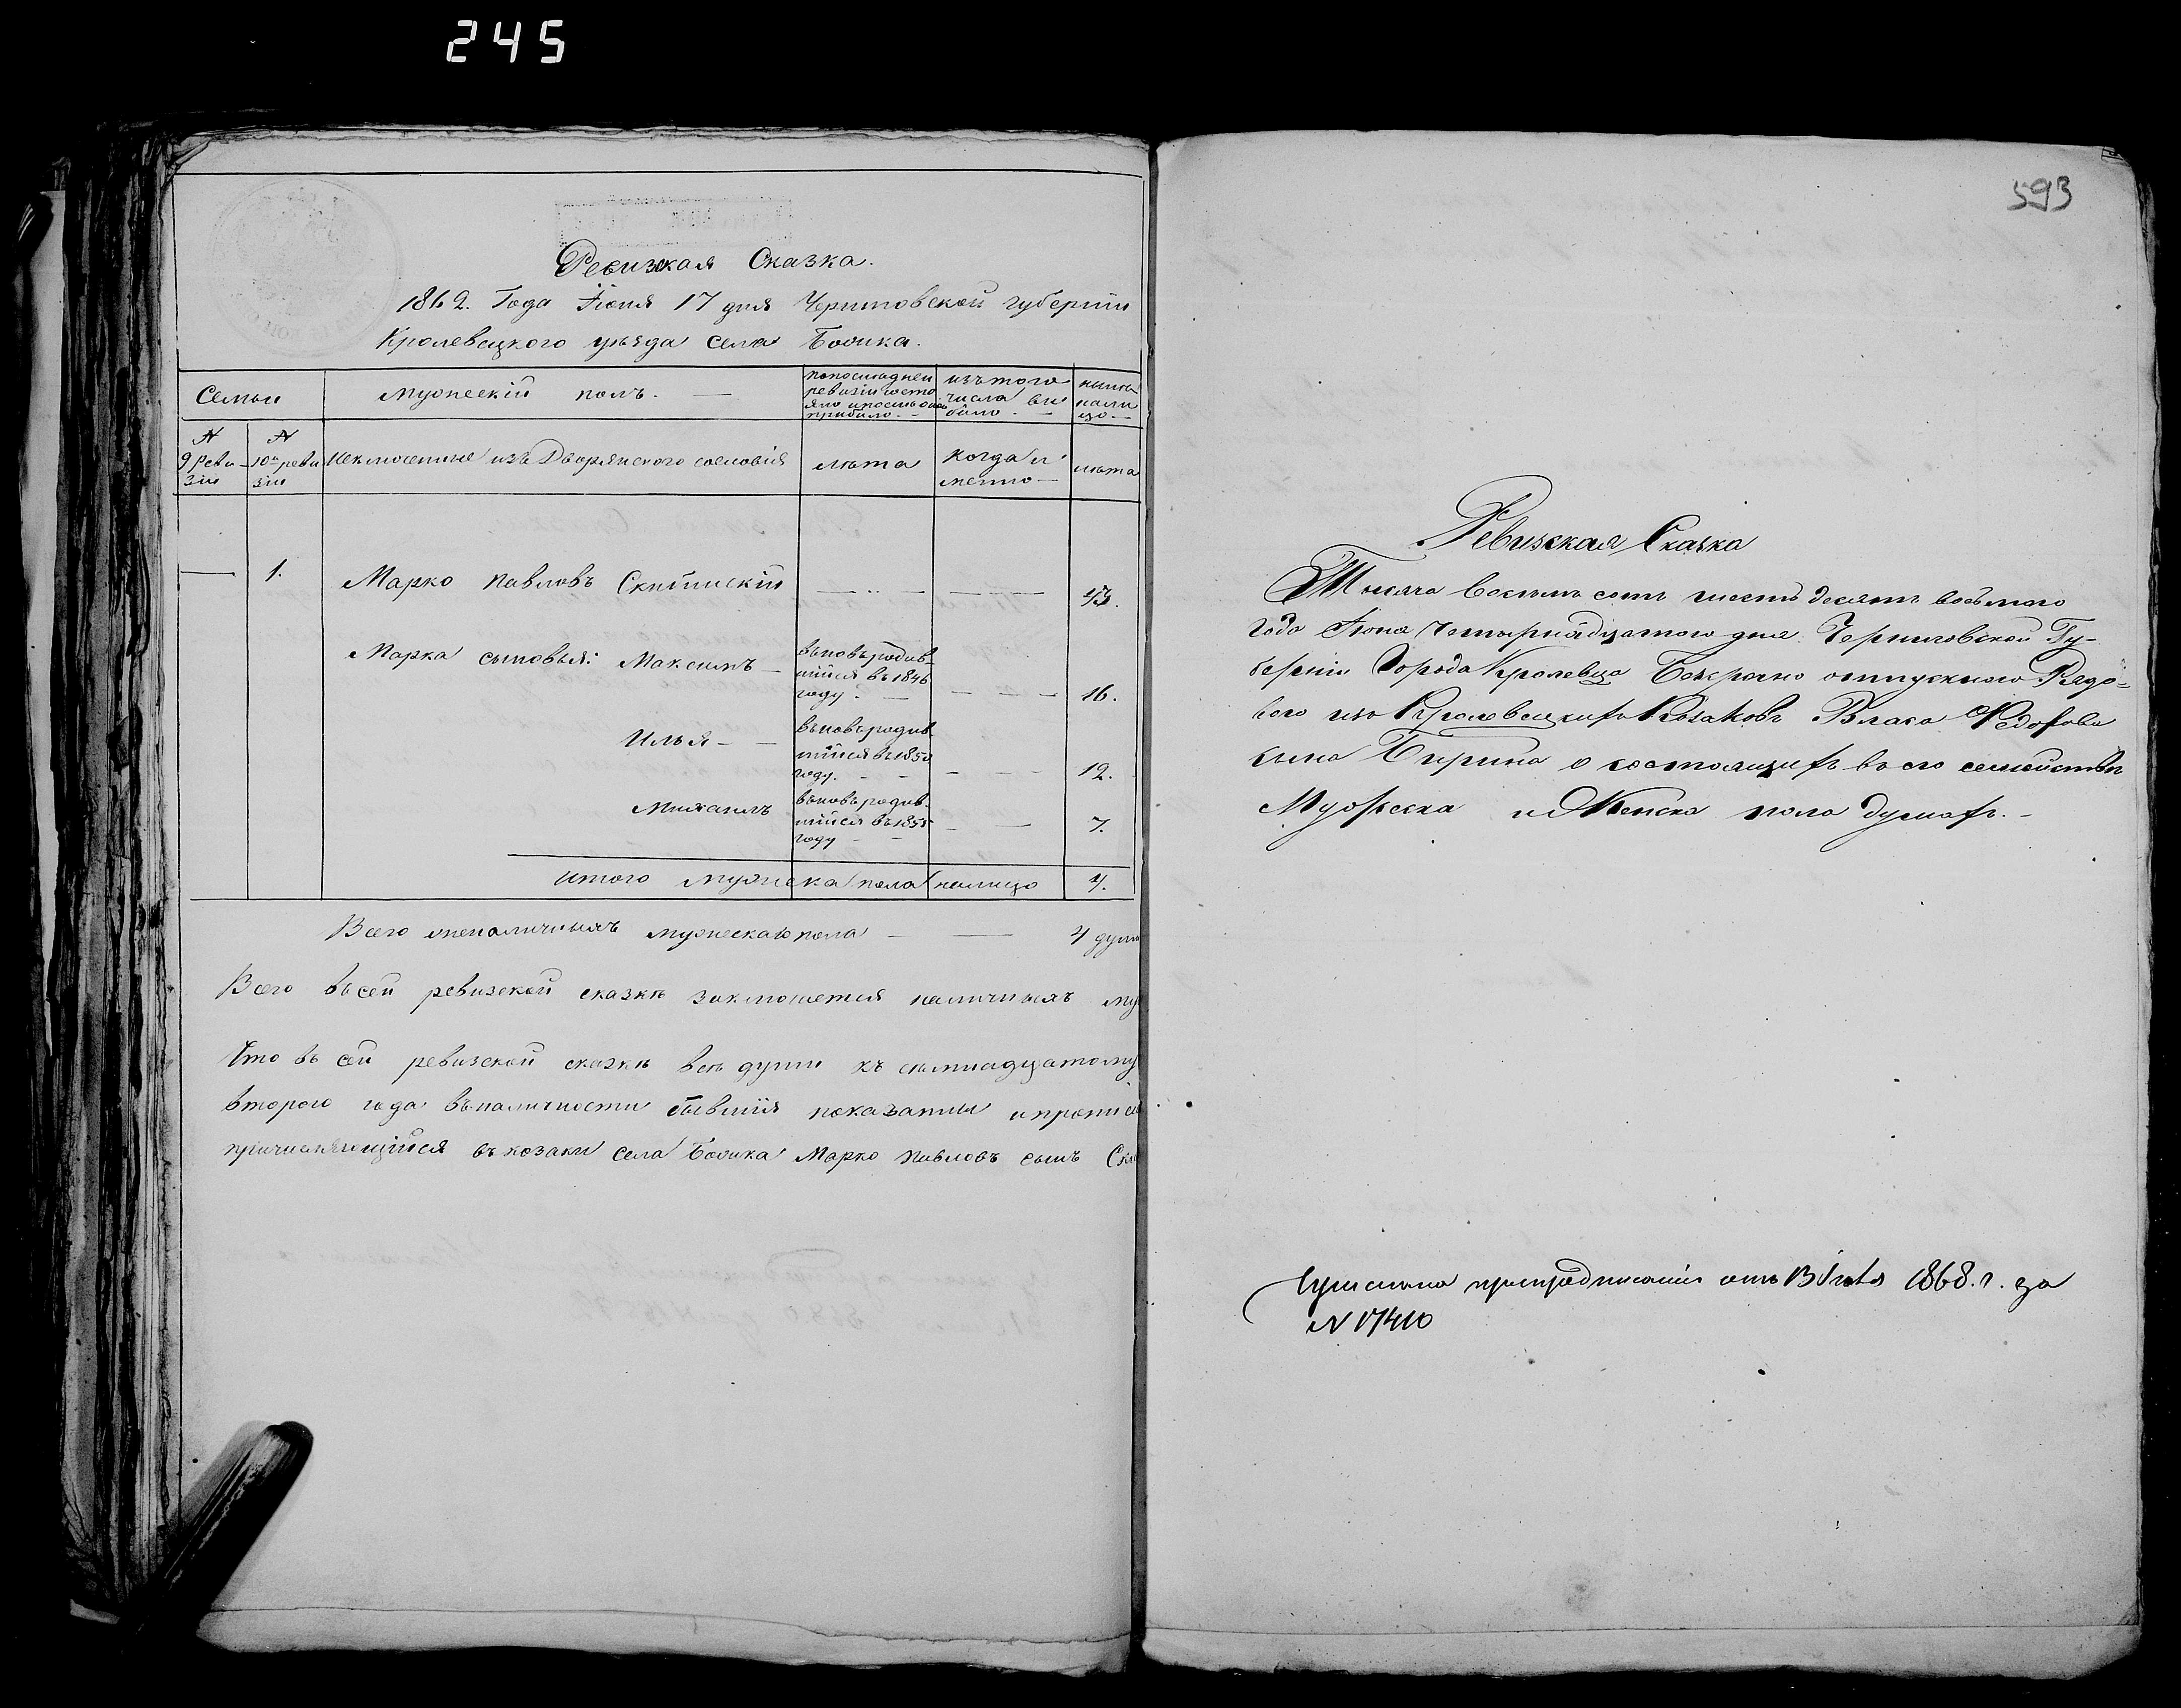 245
Ревизкая Сказка.
1862. Года Іюня 17 дня Черниговской губерніи
Кролевецкого уѣзда села Бочика.
Семьи
Мужескій полъ.
попоследней ревизіи состояло ипосле оной прибыло.
изътого числа выбыло.
нынѣ налицо.
№ 9 Ревизіи
№ 10й ревизіи
Исключенные изъ Дворянского сословія
лѣта
когда именно
лѣта
— 1. Марко Павловъ — — 43.
Марка сыновья: Максимъ — вновьродившійся въ 1846 году. — — 16.
Илья — вновьродившійся въ 1850 году. — — 12.
Михаилъ вновьродившійся въ 1855 году — — 7.
итого мужеска пола налицо 4.
Всего мужескаго пола — — 4 душ
Всего въсей ревизской сказкѣ наличныхъ му
Что въ сей ревизской сказкѣ всѣ души къ семнадцатому
второго года въналичности бывшія показанны
въ козаки села Бочика Марко Павловъ сынъ Ск
593
Ревизская Сказка
Тысяча восемь сотъ шесть десятъ восьмого
года Іюня Четырнадцатого дня Черниговской Гу-
берніи Города Кролевца отпускного Рядо-
вого изъ Кролевецкихъ Козаковъ Власа Федорова
сына Бирина о состоящихъ въ его семействѣ
Мужеска и Женска пола душахъ.-
отъ 1868. г. за
№ 17410